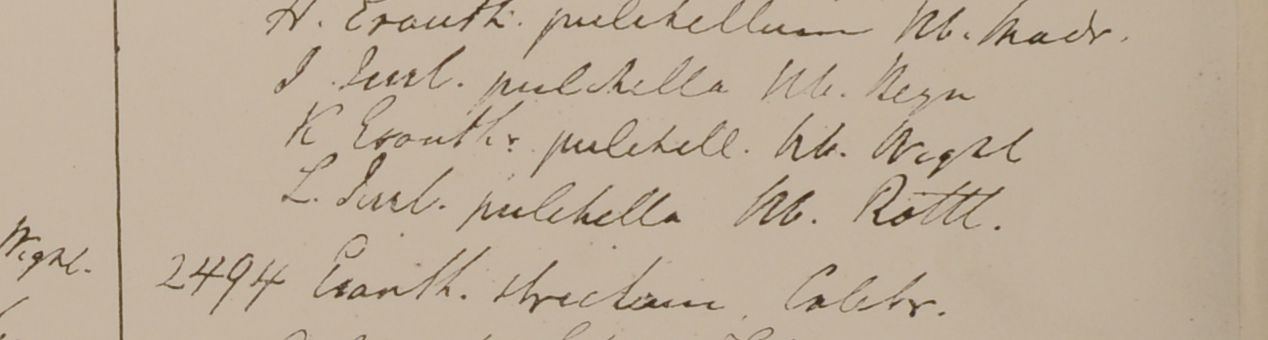 H. Eranth. pulchellum Hb. Madr.
I. Just. pulchella Hb. Heyn
K Eranth. pulchell. Hb. Wight
L. Just. pulchella Hb. Rottl.
Wight.
2494 Eranth. strictum. Colebr.